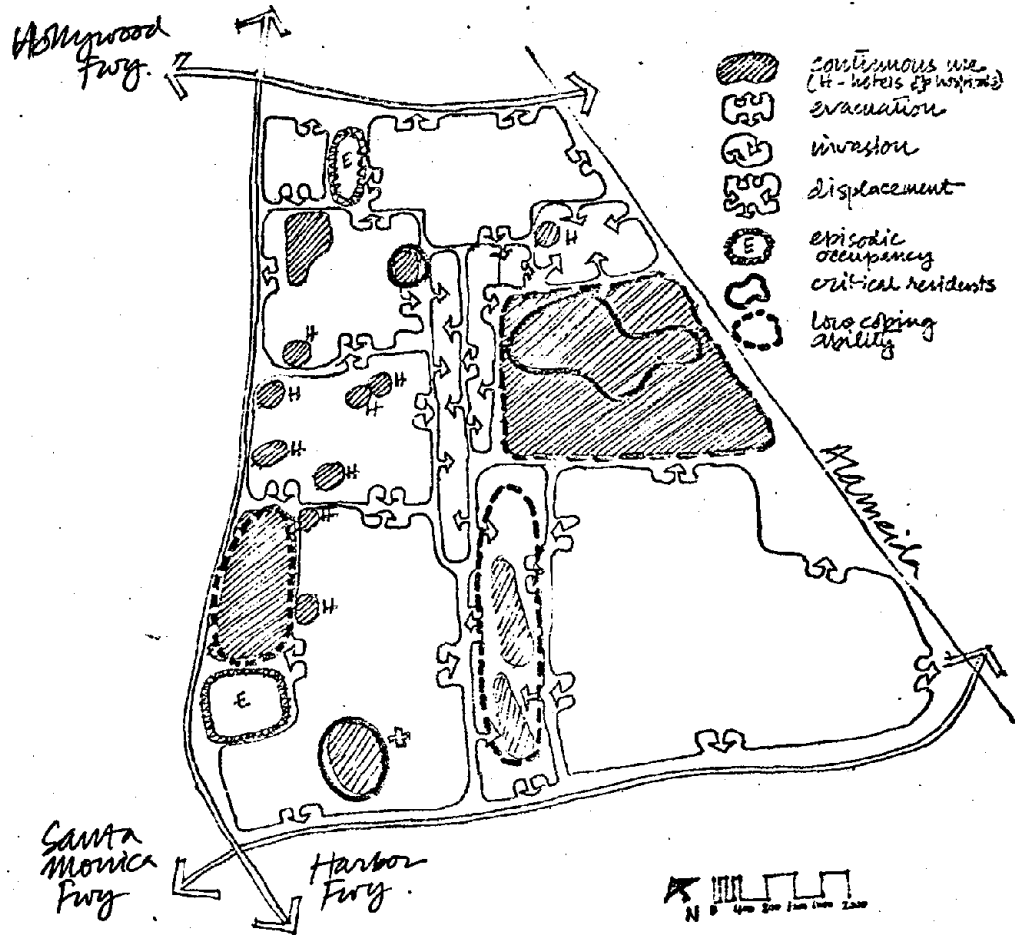 Hollywood
Fwy.
continuous use
(H-hotels & hospitals)
evacuation
invasion
displacement
E
episodic
occupency
critical residents
low coping
ability
E
H
H
H
H
H
H
H
H
H
Alameida
E
Santa
Monica
Fwy
Harbor
Fwy.
N
0 400 800